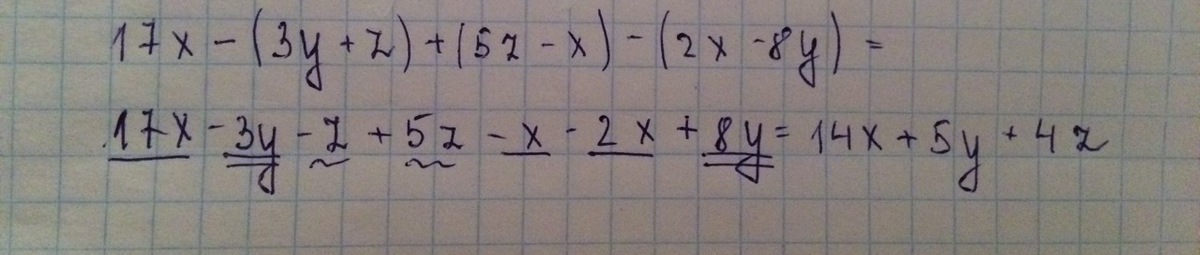 17x - (3y + z) + (5z - x) - (2x - 8y) =
17x - 3y - z + 5z - x - 2x + 8y = 14x + 5y + 4z